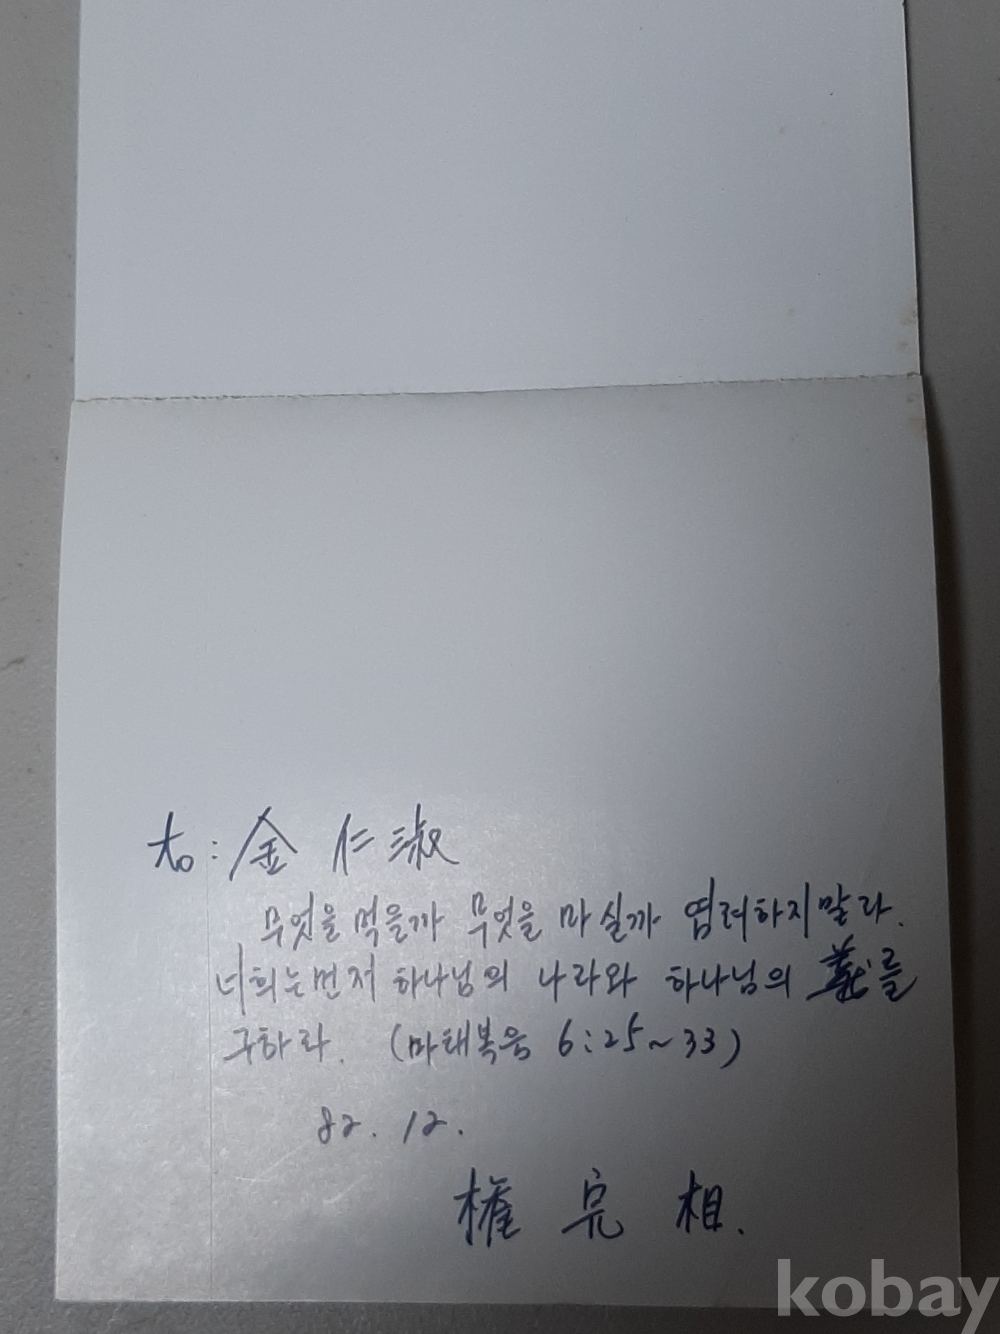 To: 金仁淑
무엇을 먹을까 무엇을 마실까 염려하지말라.
너희는 먼저 하나님의 나라와 하나님의 義를
구하라. (마태복음 6:25~33)
82. 12.
權 完 相.
kobay